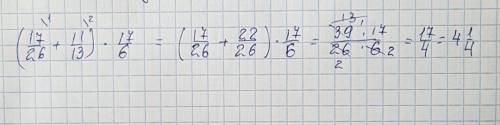 (17/26 \1 + 11/13 \2) · 17/6 = (17/26 + 22/26) · 17/6 = 13 1 39 · 17 / 26 · 6 2 2 = 17/4 = 4 1/4